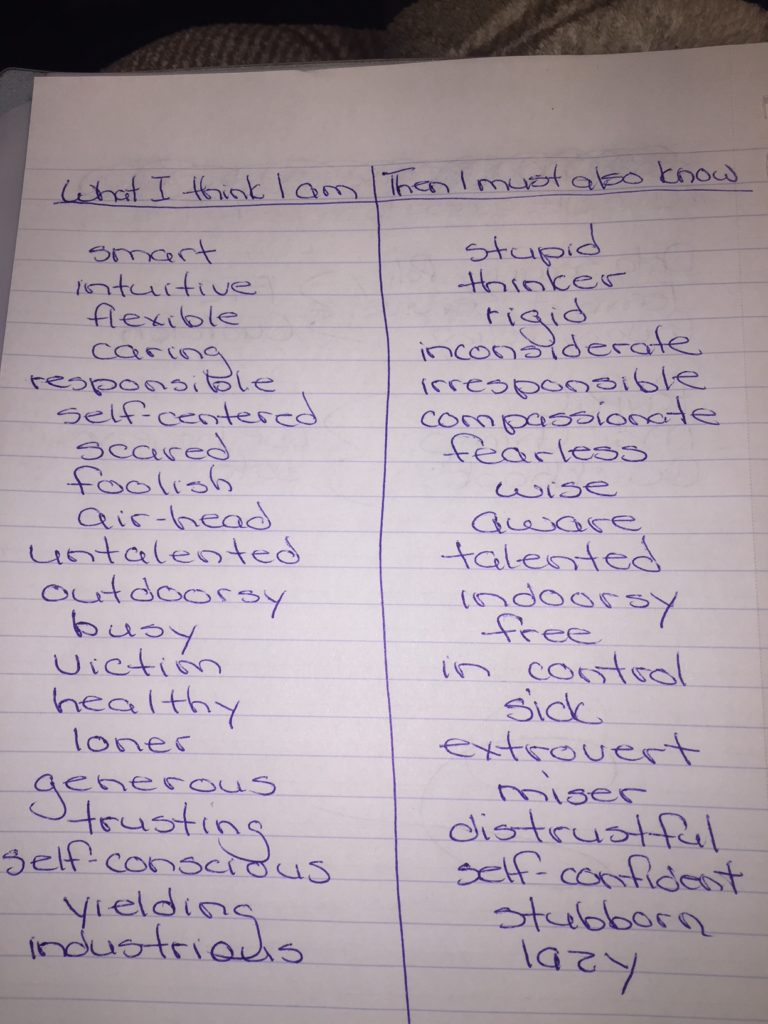 What I think I am | Then I must also know
smart stupid
intuitive thinker
flexible rigid
caring inconsiderate
responsible irresponsible
self-centered compassionate
scared fearless
foolish wise
air-head aware
untalented talented
outdoorsy indoorsy
busy free
viction in control
healthy sick
loner extrovert
generous miser
trusting distrustful
self-conscious self-confident
yielding stubborn
industrious lazy